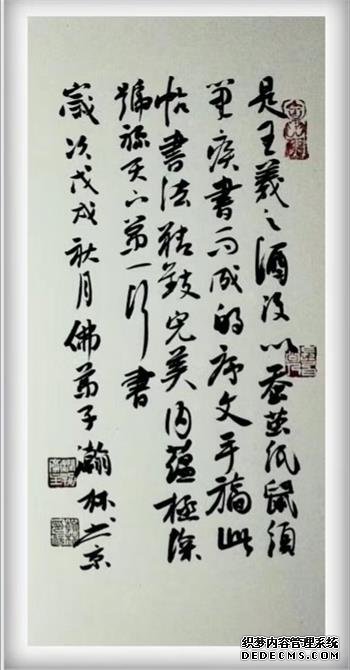 是王羲之酒后以蚕茧纸鼠须
笔疾书而成的序文手稿此
帖书法精致完美内蕴极深
号称天下第一行书
岁次戊戌秋月佛弟子瀚林书京
织梦内容管理系统
DEDECMS.COM